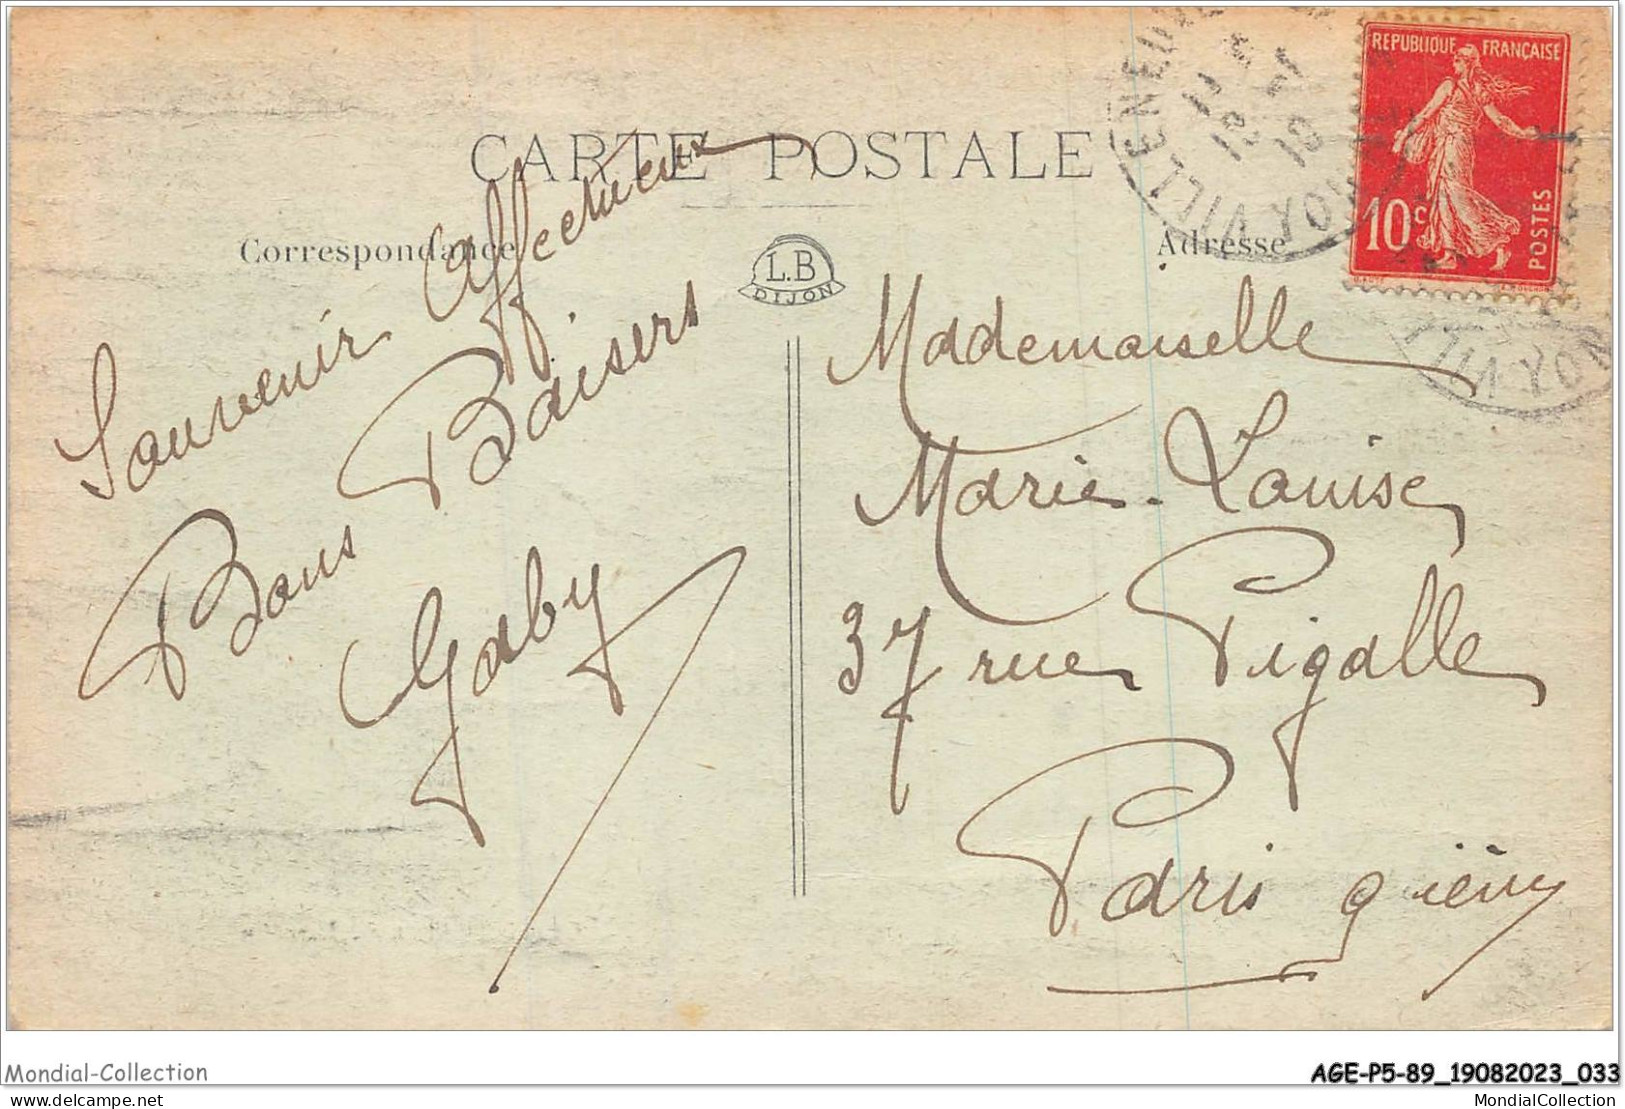 CARTE POSTALE
Correspondance
Adresse
L.B
DIJON
REPUBLIQUE FRANÇAISE
10c
POSTES
Souvenir affectueux
Bons Baisers
Gaby
Mademoiselle
Marie-Louise
37 rue Pigalle
Paris 9ième
Mondial-Collection
AGE-P5-89_19082023_033
delcampe.net
MondialCollection